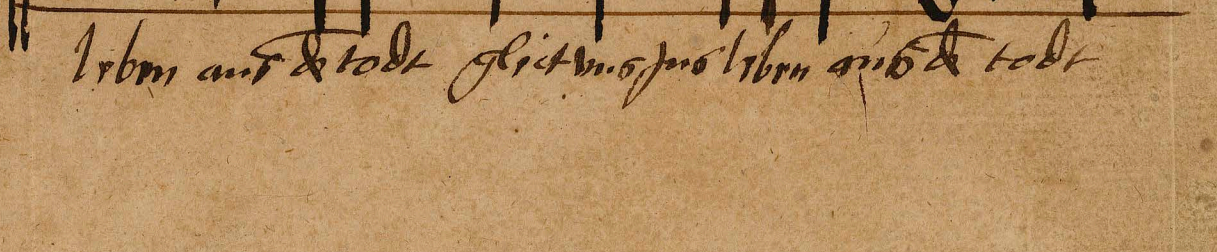 leben aus de todt gleit uns jns leben aus de todt